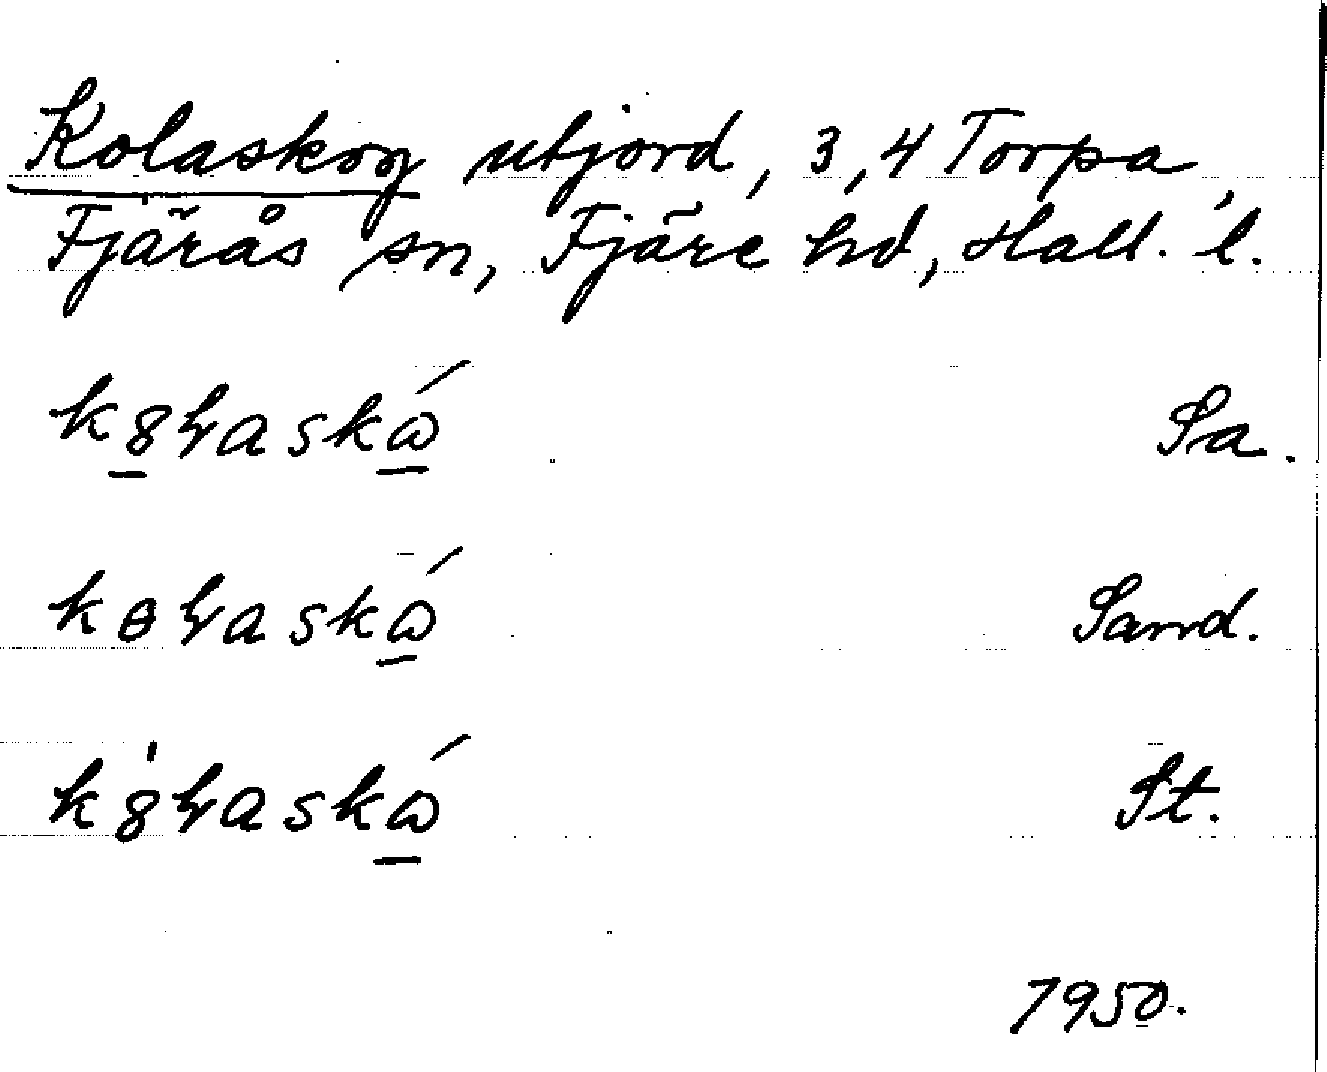 Kolaskog utjord, 3,4 Torpa,
Fjärås sn, Fjäre hd, Hall. l.
kȣ̱ɽaskώ̱ Sa.
kɵɽaskώ̱ Sand.
kȣ̍ɽaskώ̱ St.
1950.